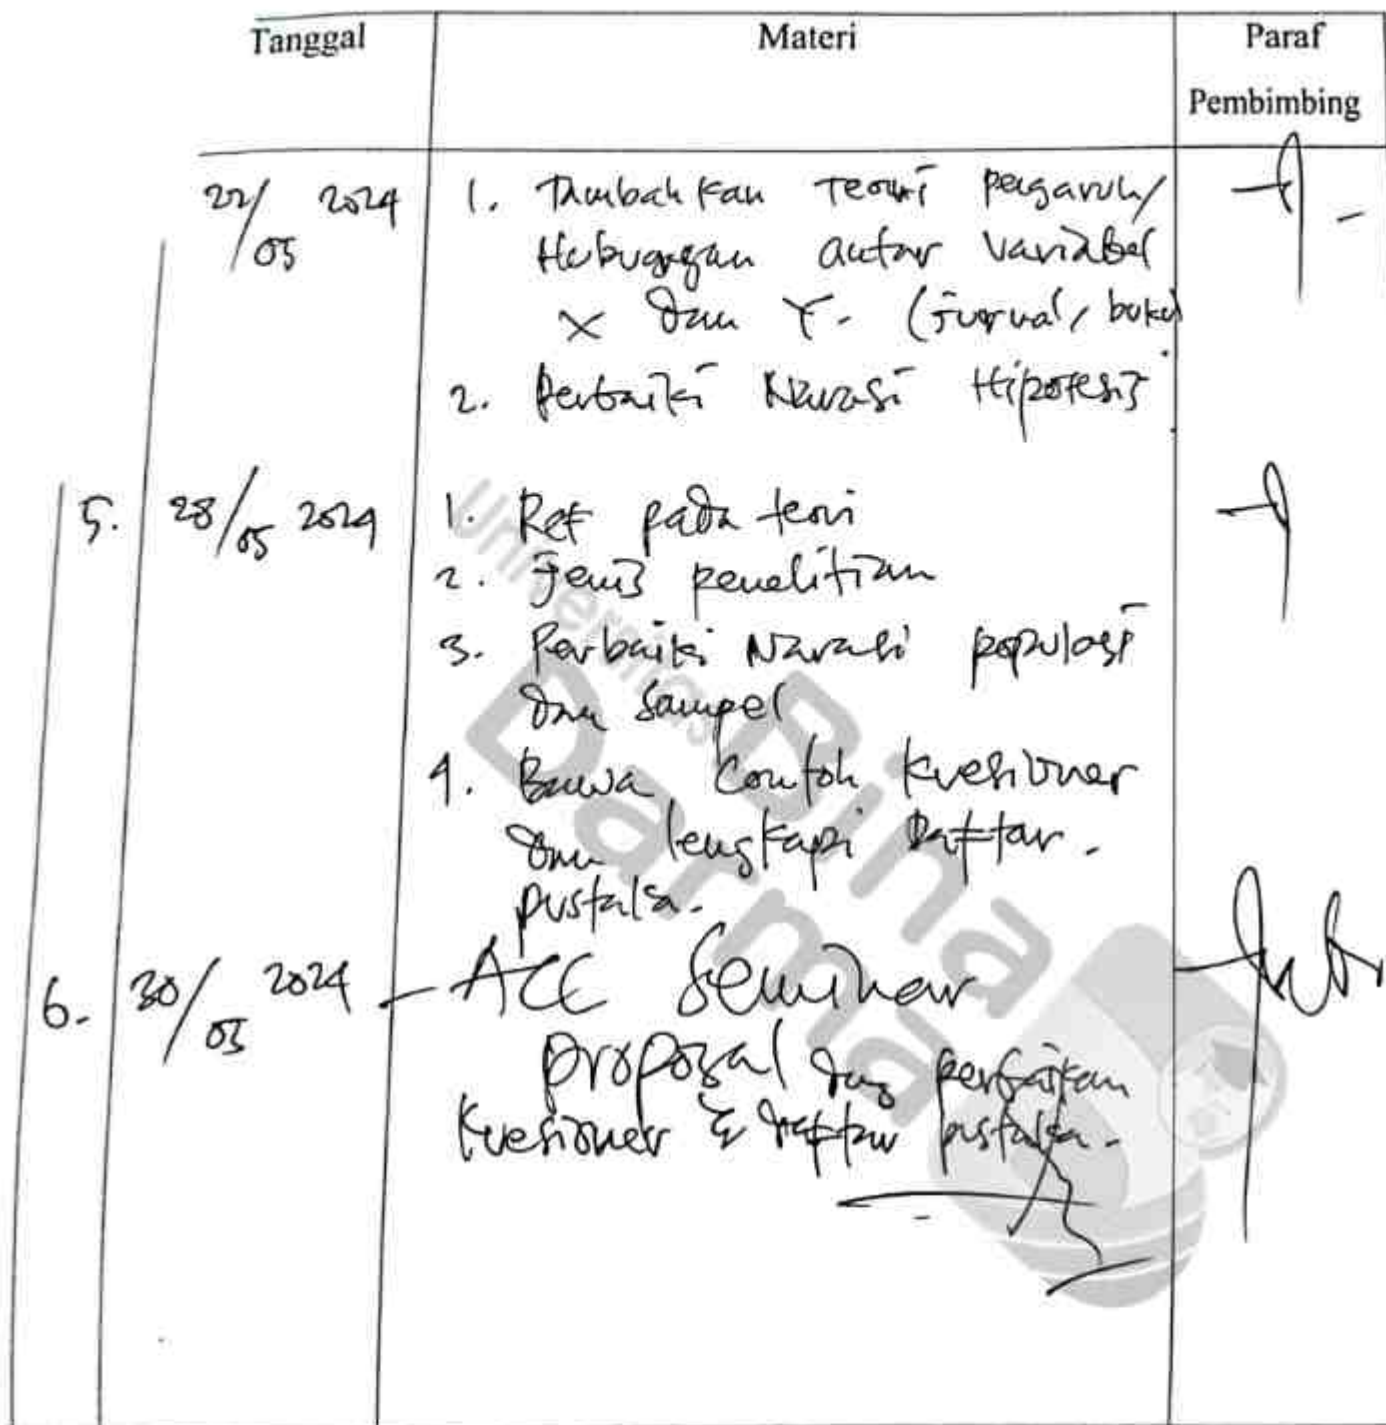 Tanggal Materi Paraf
Pembimbing
22/05 2024 1. Tambahkan teori pegaruh/
Hubungan antar variabel
X dan Y. (Jurnal/buku)
2. Perbaiki Narasi Hipotesis
5. 28/05 2024 1. Ref pada teori
2. Jenis penelitian
3. Perbaiki Narasi populasi
dan Sampel
4. Bawa Contoh kuesioner
dan lengkapi Daftar.
pustaka.
6. 30/05 2024 - ACC Seminar
proposal dng perbaikan
kuesioner & daftar pustaka.
Universitas
Bina
Darma